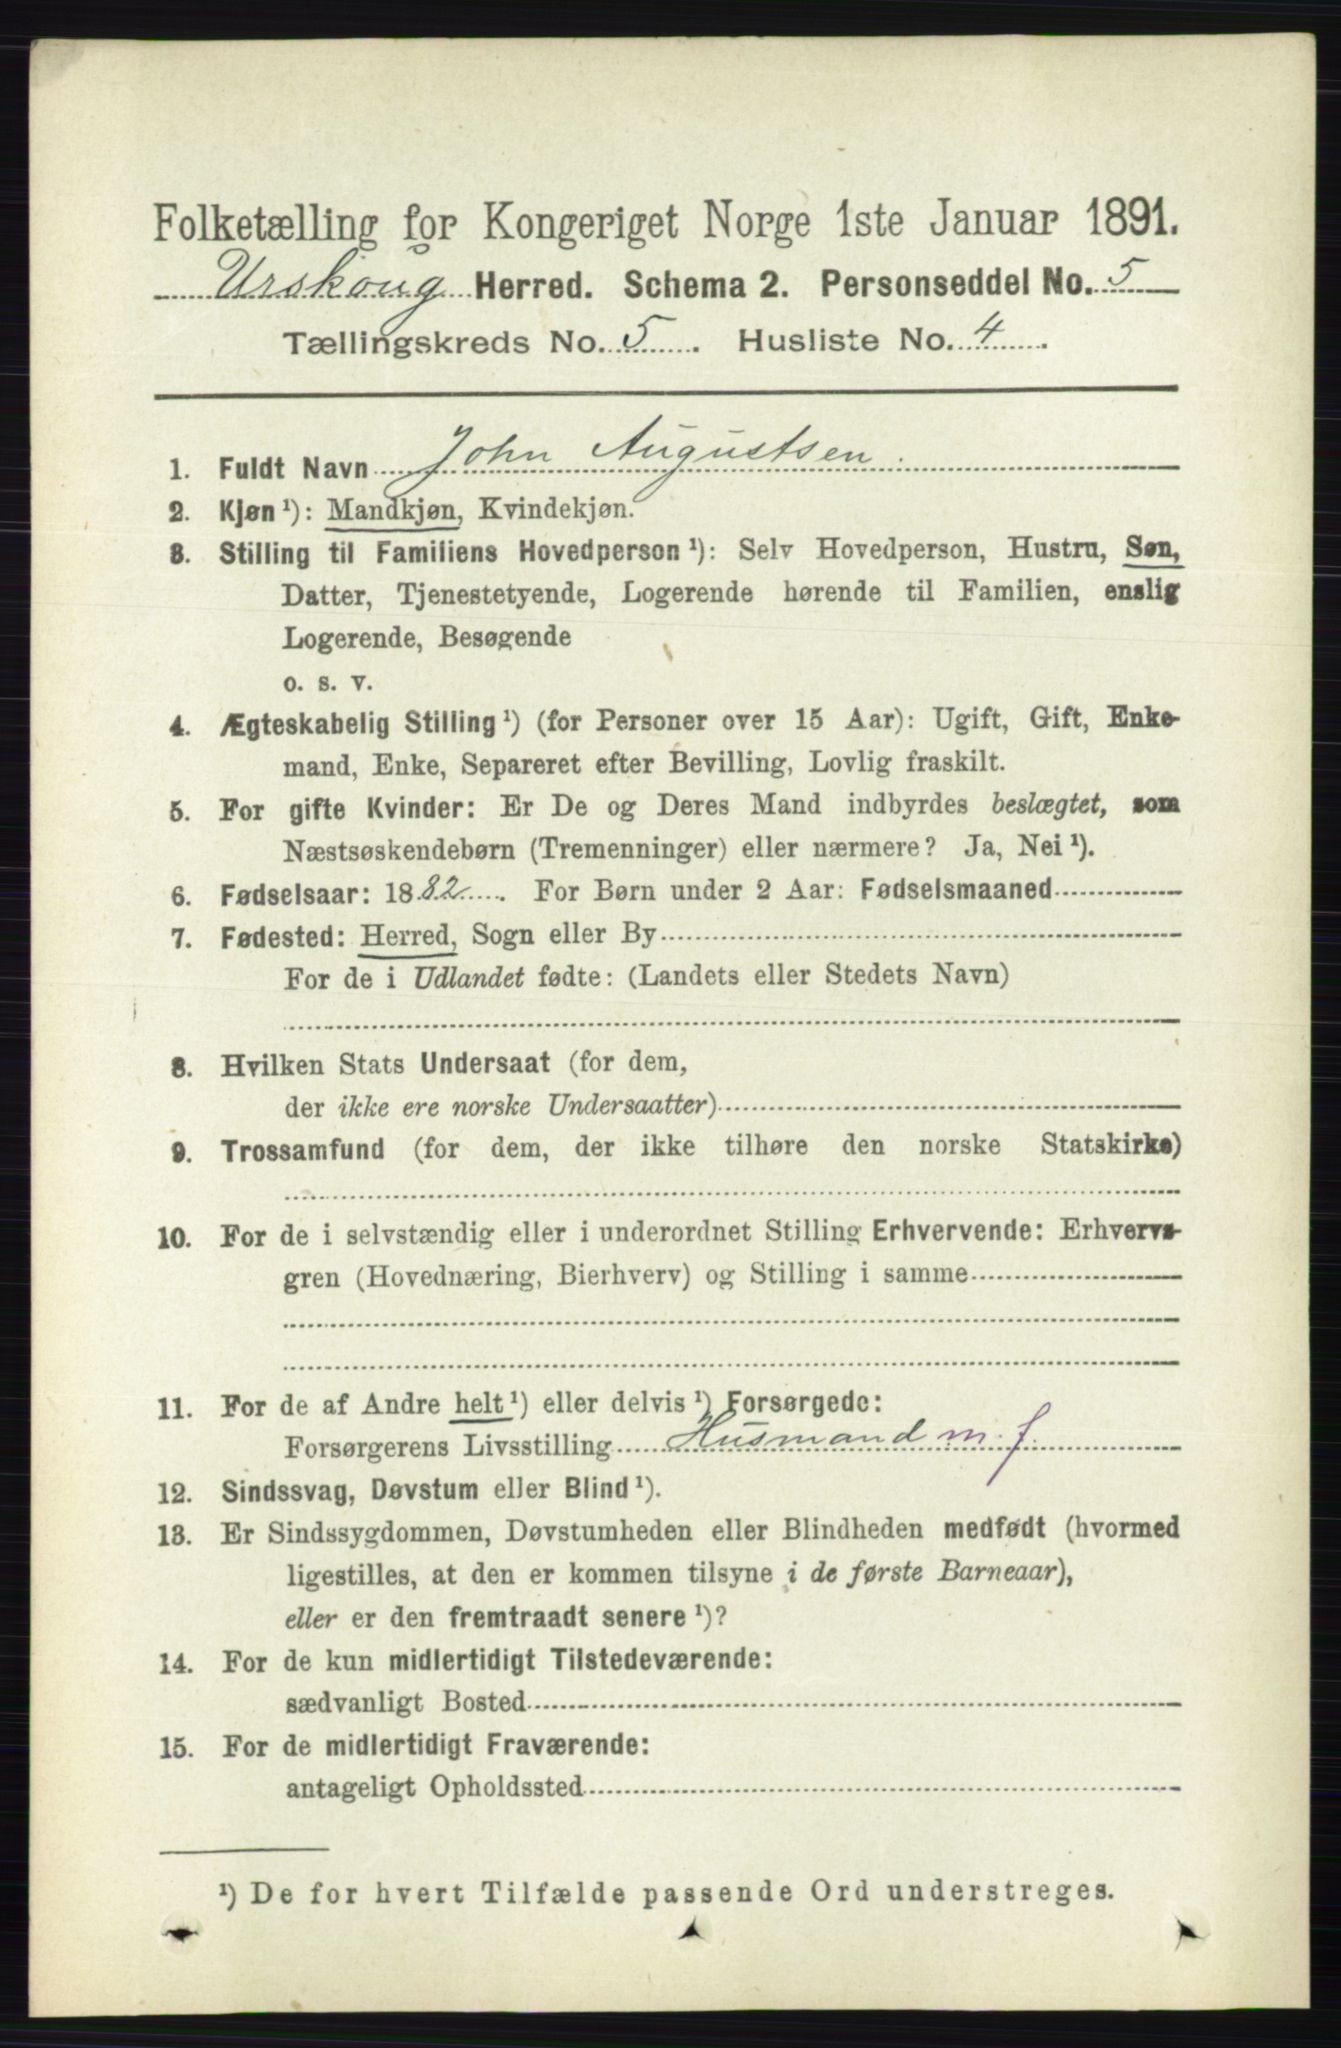 Folketælling for Kongeriget Norge 1ste Januar 1891.
Urskoug Herred. Schema 2. Personseddel No. 5
Tællingskreds No. 5. Husliste No. 4.
1. Fuldt Navn John Augustsen.
2. Kjøn ¹): Mandkjøn, Kvindekjøn.
3. Stilling til Familiens Hovedperson ¹): Selv Hovedperson, Hustru, Søn,
Datter, Tjenestetyende, Logerende hørende til Familien, enslig
Logerende, Besøgende
o. s. v.
4. Ægteskabelig Stilling ¹) (for Personer over 15 Aar): Ugift, Gift, Enke-
mand, Enke, Separeret efter Bevilling, Lovlig fraskilt.
5. For gifte Kvinder: Er De og Deres Mand indbyrdes beslægtet, som
Næstsøskendebørn (Tremenninger) eller nærmere? Ja, Nei ¹).
6. Fødselsaar: 1882. For Børn under 2 Aar: Fødselsmaaned
7. Fødested: Herred, Sogn eller By
For de i Udlandet fødte: (Landets eller Stedets Navn)
8. Hvilken Stats Undersaat (for dem,
der ikke ere norske Undersaatter)
9. Trossamfund (for dem, der ikke tilhøre den norske Statskirke)
10. For de i selvstændig eller i underordnet Stilling Erhvervende: Erhvervs-
gren (Hovednæring, Bierhverv) og Stilling i samme
11. For de af Andre helt ¹) eller delvis ¹) Forsørgede:
Forsørgerens Livsstilling Husmand m. f.
12. Sindssvag, Døvstum eller Blind ¹).
13. Er Sindssygdommen, Døvstumheden eller Blindheden medfødt (hvormed
ligestilles, at den er kommen tilsyne i de første Barneaar),
eller er den fremtraadt senere ¹)?
14. For de kun midlertidigt Tilstedeværende:
sædvanligt Bosted
15. For de midlertidigt Fraværende:
antageligt Opholdssted
¹) De for hvert Tilfælde passende Ord understreges.